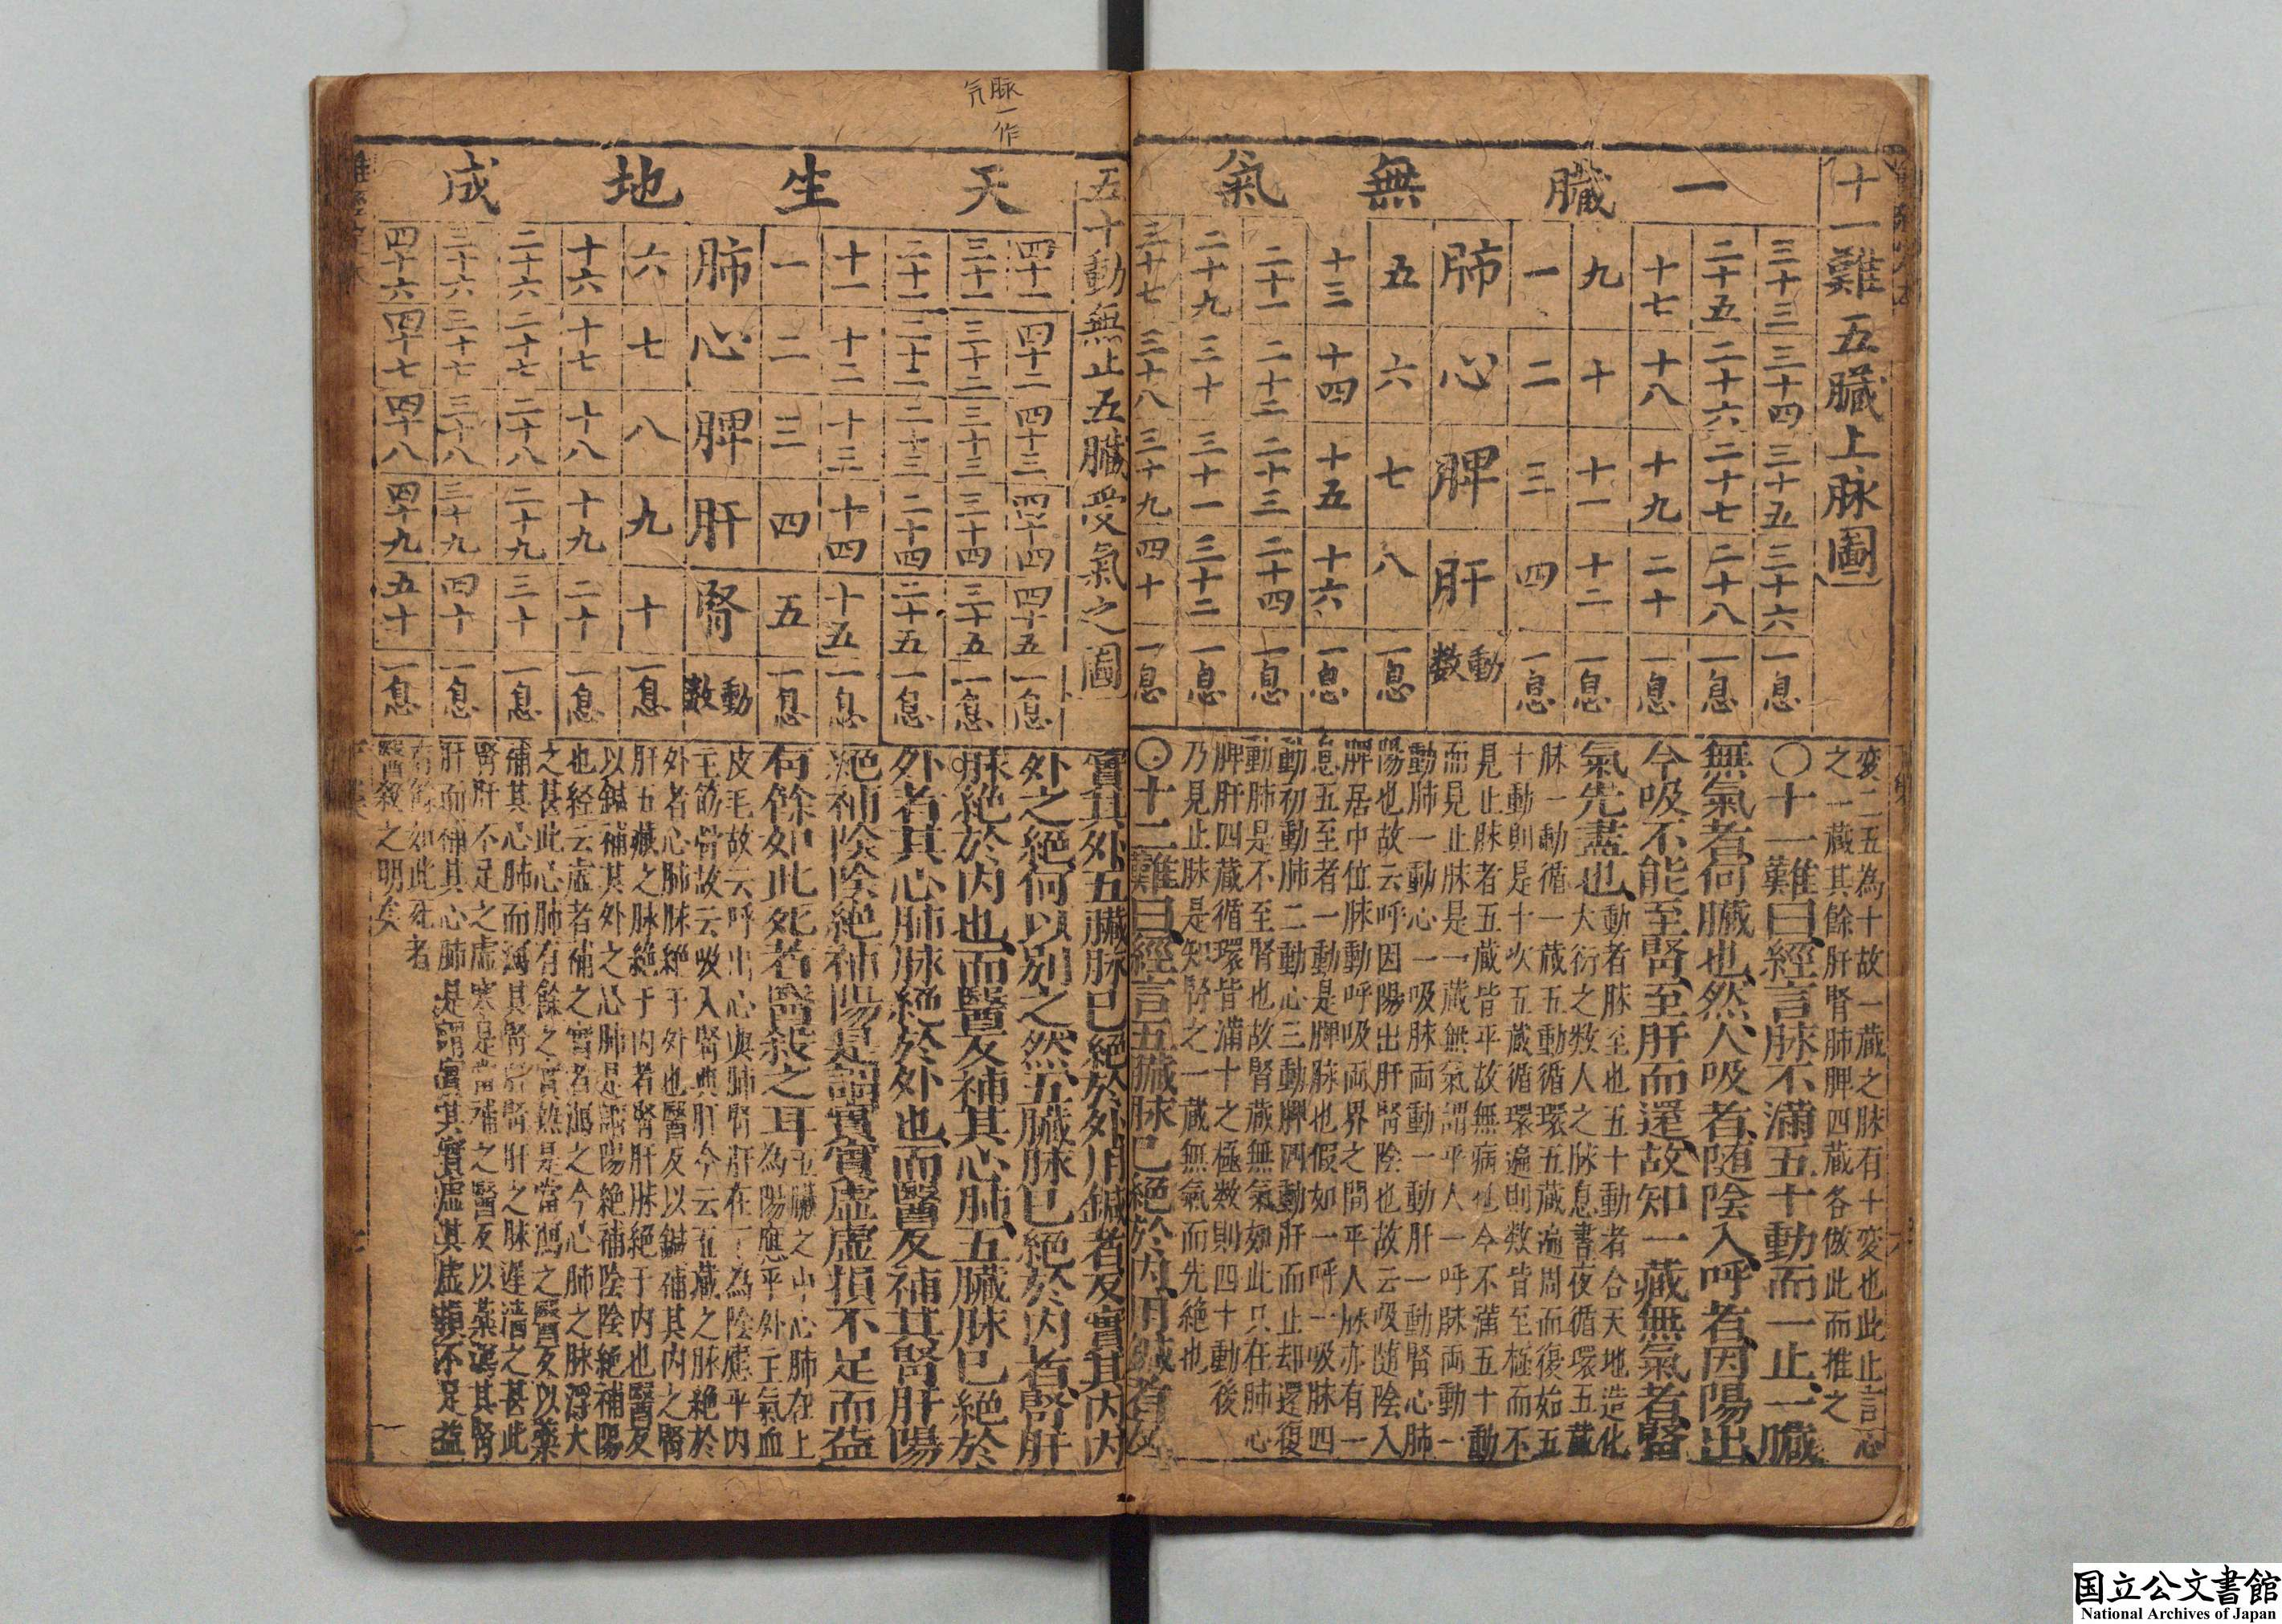 十一難五臟上脉圖
一臟無氣
三十三 三十四 三十五 三十六 一息
二十五 二十六 二十七 二十八 一息
十七 十八 十九 二十 一息
九 十 十一 十二 一息
一 二 三 四 一息
肺 心 脾 肝 動數
五 六 七 八 一息
十三 十四 十五 十六 一息
二十一 二十二 二十三 二十四 一息
二十九 三十 三十一 三十二 一息
三十七 三十八 三十九 四十 一息
変二五為十故一藏之脉有十変也此止言心
之一藏其餘肝腎肺脾四藏各倣此而推之
〇十一難曰經言脉不滿五十動而一止一臟
無氣者何臟也然人吸者随陰入呼者因陽出
今吸不能至腎至肝而還故知一藏無氣者腎
氣先盡也
動者脉至也五十動者合天地造化
大衍之数人之脉息晝夜循環五藏
脉一動循一藏五動循環五藏遍周而復始五
十動則是十次五藏循環遍則数皆至極而不
見止脉者五藏皆平故無病也今不滿五十動
而見止脉是一藏無氣謂平人一呼脉両動一
動肺一動心一吸脉両動一動肝一動腎心肺
陽也故云呼因陽出肝腎陰也故云吸随陰入
脾居中位脉動呼吸両界之間平人脉亦有一
息五至者一動是脾脉也假如一呼一吸脉四
動初動肺二動心三動脾四動肝而止却還復
動肺是不至腎也故腎藏無氣如此只在肺心
脾肝四藏循環皆滿十之極数則四十動後
乃見止脉是知腎之一藏無氣而先絶也
〇十二難曰經言五臟脉已絶於内用鍼者反
脉一作
氕
五十動無止五臟受氣之圖
天生地成
四十一 四十二 四十三 四十四 四十五 一息
三十一 三十二 三十三 三十四 三十五 一息
二十一 二十二 二十三 二十四 二十五 一息
十一 十二 十三 十四 十五 一息
一 二 三 四 五 一息
肺 心 脾 肝 腎 動數
六 七 八 九 十 一息
十六 十七 十八 十九 二十 一息
二十六 二十七 二十八 二十九 三十 一息
三十六 三十七 三十八 三十九 四十 一息
四十六 四十七 四十八 四十九 五十 一息
實其外五臟脉已絶於外用鍼者反實其内内
外之絶何以别之然五臟脉已絶於内者腎肝
脉絶於内也而醫反補其心肺五臟脉已絶於
外者其心肺脉絶於外也而醫反補其腎肝陽
絶補陰陰絶補陽是謂實實虚虚損不足而益
有餘如此死者醫殺之耳
五臟之中心肺在上
為陽應乎外主氣血
皮毛故云呼出心與肺腎肝在下為陰應乎内
主筋骨故云吸入腎與肝今云五藏之脉絶於
外者心肺脉絶于外也醫反以鍼補其内之腎
肝五藏之脉絶于内者腎肝脉絶于内也醫反
以鍼補其外之心肺是謂陽絶補陰陰絶補陽
也经云虚者補之實者瀉之今心肺之脉浮大
之甚此心肺有餘之實熱是當瀉之醫反以藥
補其心肺而瀉其腎肝腎肝之脉遲濇之甚此
腎肝不足之虚寒是當補之醫反以藥瀉其腎
肝而補其心肺是謂實其實虚其虚損不足益
有餘如此死者
醫殺之明矣
国立公文書館
National Archives of Japan